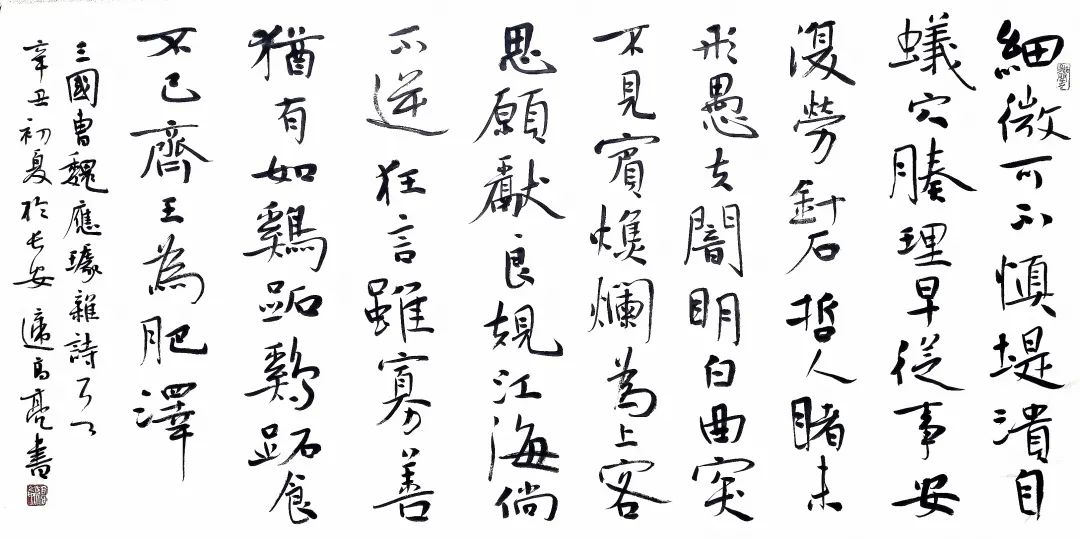 細微可不慎堤潰自
蟻穴腠理早從事安
復勞針石哲人睹未
形愚夫闇明白曲突
不見賓燋爛為上客
思願獻良規江海倘
不逆狂言雖寡善
猶有如鷄跖鷄跖食
不已齊王為肥澤
三國曹魏應璩雜詩
辛丑初夏於長安 高亮書